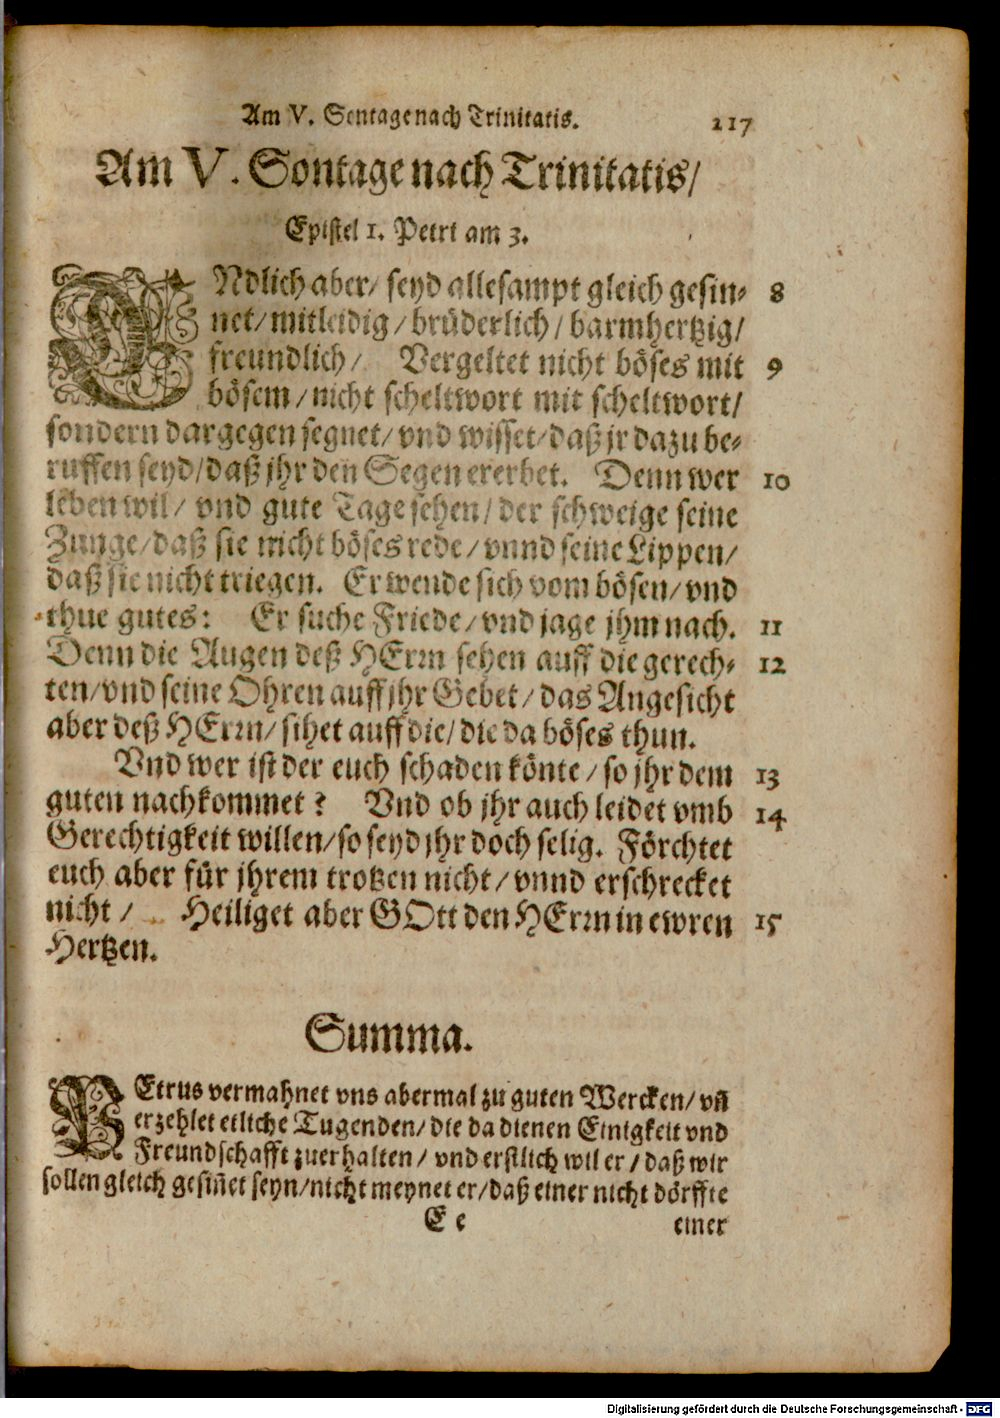 Am V. Sontage nach Trinitatis. 217
Am V. Sontage nach Trinitatis/
Epistel 1. Petri am 3.
ENdlich aber/ seyd allesampt gleich gesin- 8
net/ mitleidig/ brüderlich/ barmhertzig/
freundlich/ Vergeltet nicht böses mit 9
bösem/ nicht scheltwort mit scheltwort/
sondern dargegen segnet/ vnd wisset/ daß jr dazu be-
ruffen seyd/ daß jhr den Segen ererbet. Denn wer 10
leben wil/ vnd gute Tage sehen/ der schweige seine
Zunge/ daß sie nicht böses rede/ vnnd seine Lippen/
daß sie nicht triegen. Er wende sich vom bösen/ vnd
thue gutes: Er suche Friede/ vnd jage jhm nach. 11
Denn die Augen deß HErrn sehen auff die gerech- 12
ten/ vnd seine Ohren auff jhr Gebet/ das Angesicht
aber deß HErrn/ sihet auff die/ die da böses thun.
Vnd wer ist der euch schaden könte/ so jhr dem 13
guten nachkommet? Vnd ob jhr auch leidet vmb 14
Gerechtigkeit willen/ so seyd jhr doch selig. Förchtet
euch aber für jhrem trotzen nicht/ vnnd erschrecket
nicht/ Heiliget aber GOtt den HErrn in ewren 15
Hertzen.
Summa.
PEtrus vermahnet vns abermal zu guten Wercken/ vn̄
erzehlet etliche Tugenden/ die da dienen Einigkeit vnd
Freundschafft zuerhalten/ vnd erstlich wil er/ daß wir
sollen gleich gesin̄et seyn/ nicht meynet er/ daß einer nicht dörffte
E e einer
Digitalisierung gefördert durch die Deutsche Forschungsgemeinschaft - DFG